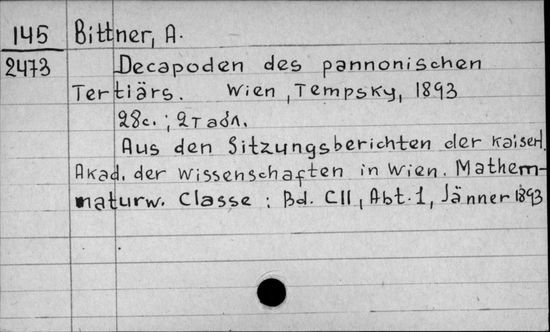 145 Bittner, A.
2473 Decapoden des pannonischen
Tertiärs. Wien, Tempsky, 1893
28c.; 2табл.
Aus den Sitzungsberichten der Kaiserl.
Akad. der Wissenschaften in Wien. Mathem-
naturw. Classe: Bd. CII, Abt. 1, Jänner 1893